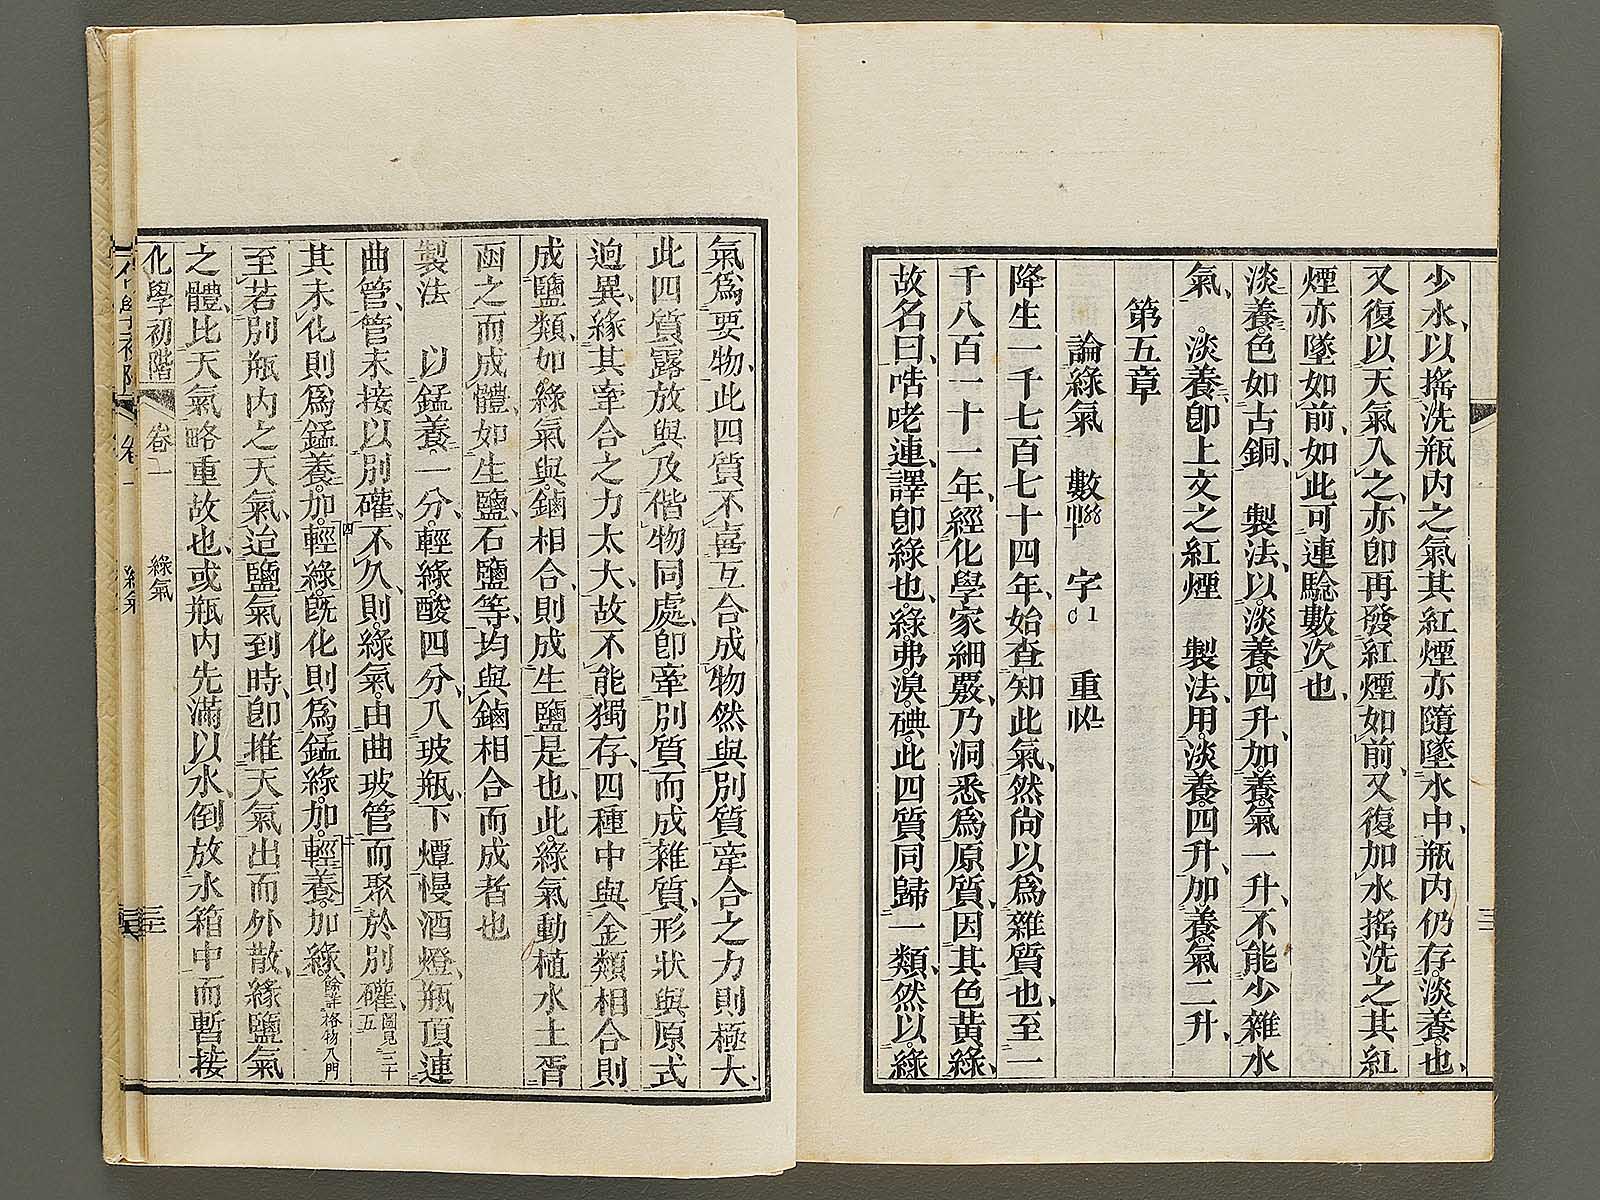 少水、以搖洗瓶内之氣其紅煙亦隨墜水中、瓶内仍存淡養也、
又復以天氣入之、亦卽再發紅煙如前、又復加水搖洗之其紅
煙亦墜如前、如此可連驗數次也、
淡養色如古銅 製法、以淡養四升、加養氣一升、不能少雜水
氣 淡養卽上文之紅煙 製法、用淡養四升、加養氣二升、
第五章
論綠氣 數 字 Cl 重
降生一千七百七十四年、始查知此氣、然尚以爲雜質也、至一
千八百一十一年、經化學家細覈、乃洞悉爲原質、因其色黄綠、
故名曰、咭咾連、譯卽綠也、綠弗溴碘此四質同歸一類、然以綠
氣爲要物、此四質不喜互合成物、然與別質牽合之力則極大、
此四質露放與及偕物同處、卽牽別質而成雜質、形狀與原式
迫異、緣其牽合之力太大、故不能獨存、四種中與金類相合則
成鹽類、如綠氣與鏀相合、則成生鹽是也、此綠氣動植水土胥
函之而成體、如生鹽、石鹽等、均與鏀相合而成者也
製法 以錳養一分、輕綠酸四分、入玻瓶、下燂慢酒燈、瓶頂連
曲管、管末接以別礶、不久、則綠氣由曲玻管而聚於別礶、圖見三十五
其未化則爲錳養加四輕綠旣化則爲錳綠加二輕養加綠餘詳格物入門
至若別瓶内之天氣、迨鹽氣到時、卽推天氣出而外散、緣鹽氣
之體、比天氣略重故也、或瓶内先滿以水、倒放水箱中而暫接
化學初階 卷一 綠氣